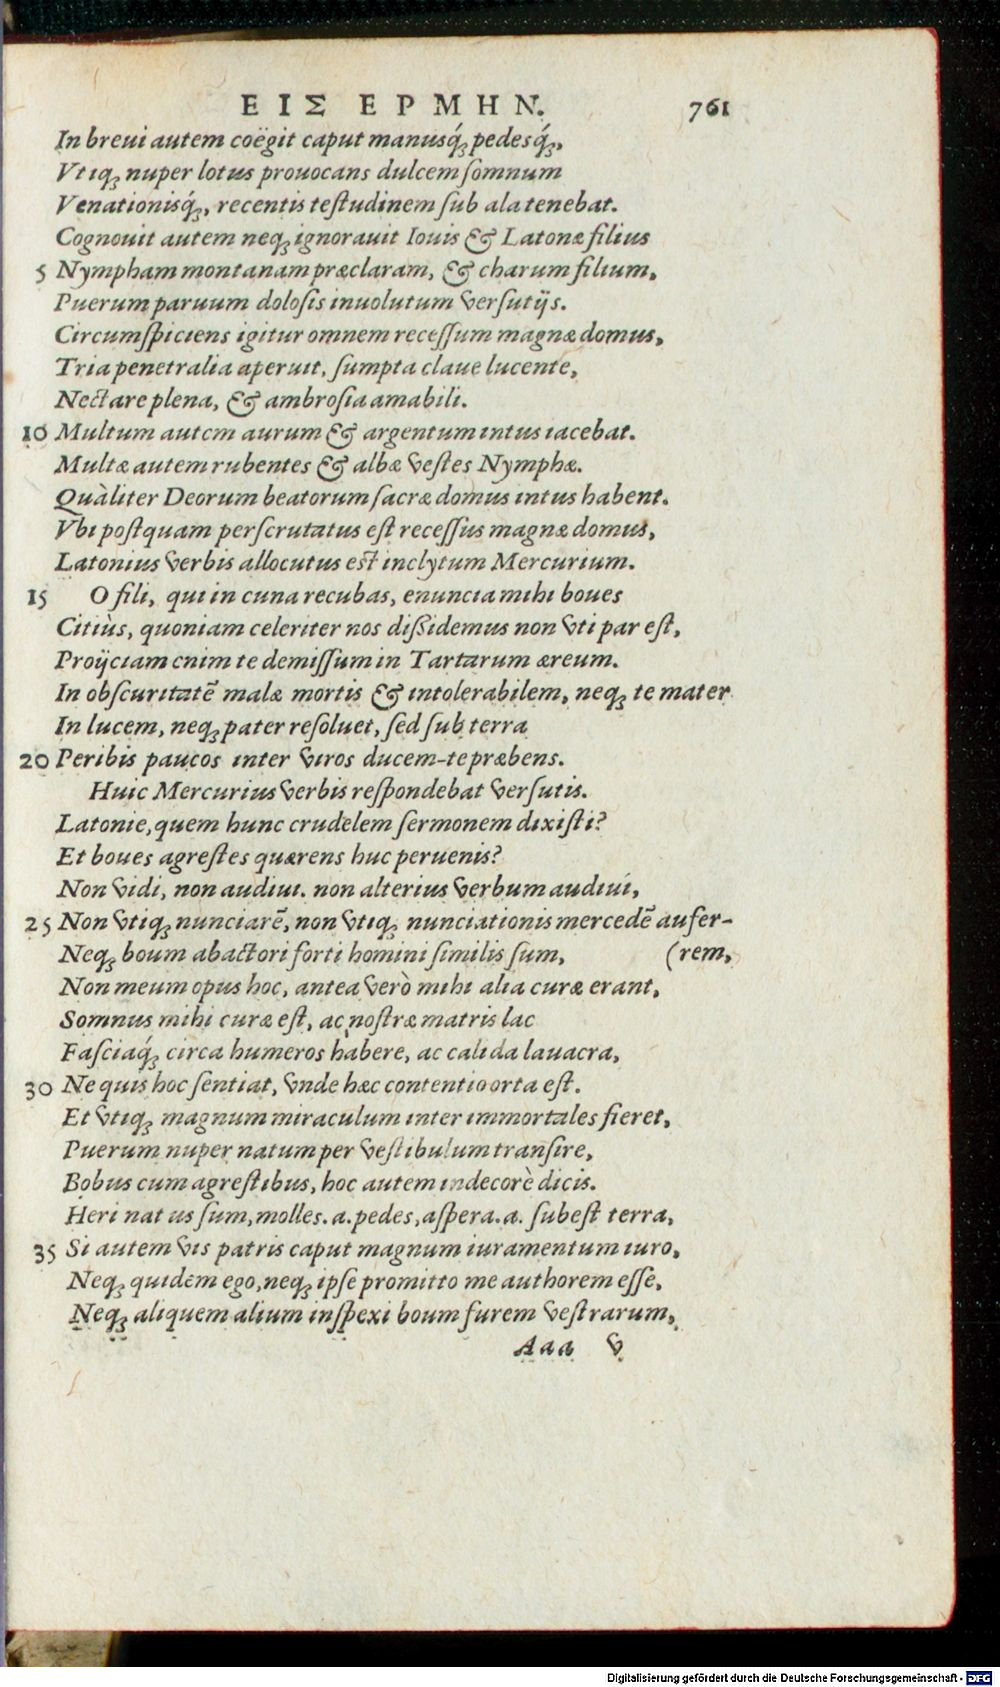 ΕΙΣ ΕΡΜΗΝ. 761
In breui autem coëgit caput manusq́; pedesq́;,
Vtiq; nuper lotus prouocans dulcem ſomnum
Venationisq́;, recentis teſtudinem ſub ala tenebat.
Cognouit autem neq; ignorauit Iouis & Latonæ filius
5 Nympham montanam præclaram, & charum filium,
Puerum paruum doloſis inuolutum verſutijs.
Circumſpiciens igitur omnem receſſum magnæ domus,
Tria penetralia aperuit, ſumpta claue lucente,
Nectare plena, & ambroſia amabili.
10 Multum autem aurum & argentum intus iacebat.
Multæ autem rubentes & albæ veſtes Nymphæ.
Quàliter Deorum beatorum ſacræ domus intus habent.
Vbi poſtquam perſcrutatus eſt receſſus magnæ domus,
Latonius verbis allocutus eſt inclytum Mercurium.
15 O fili, qui in cuna recubas, enuncia mihi boues
Citiùs, quoniam celeriter nos diſſidemus non vti par eſt,
Proijciam enim te demiſſum in Tartarum æreum.
In obſcuritatē malæ mortis & intolerabilem, neq; te mater
In lucem, neq; pater reſoluet, ſed ſub terra
20 Peribis paucos inter viros ducem-te præbens.
Huic Mercurius verbis reſpondebat verſutis.
Latonie, quem hunc crudelem ſermonem dixiſti?
Et boues agreſtes quærens huc peruenis?
Non vidi, non audiui. non alterius verbum audiui,
25 Non vtiq; nunciarē, non vtiq; nunciationis mercedē aufer-
Neq; boum abactori forti homini ſimilis ſum, (rem,
Non meum opus hoc, antea verò mihi alia curæ erant,
Somnus mihi curæ eſt, ac noſtræ matris lac
Faſciaq́; circa humeros habere, ac calida lauacra,
30 Ne quis hoc ſentiat, vnde hæc contentio orta eſt.
Et vtiq; magnum miraculum inter immortales fieret,
Puerum nuper natum per veſtibulum tranſire,
Bobus cum agreſtibus, hoc autem indecorè dicis.
Heri natus ſum, molles. a. pedes, aſpera. a. ſubeſt terra,
35 Si autem vis patris caput magnum iuramentum iuro,
Neq; quidem ego, neq; ipſe promitto me authorem eſſe,
Neq; aliquem alium inſpexi boum furem veſtrarum,
Aaa v
Digitalisierung gefördert durch die Deutsche Forschungsgemeinschaft - DFG